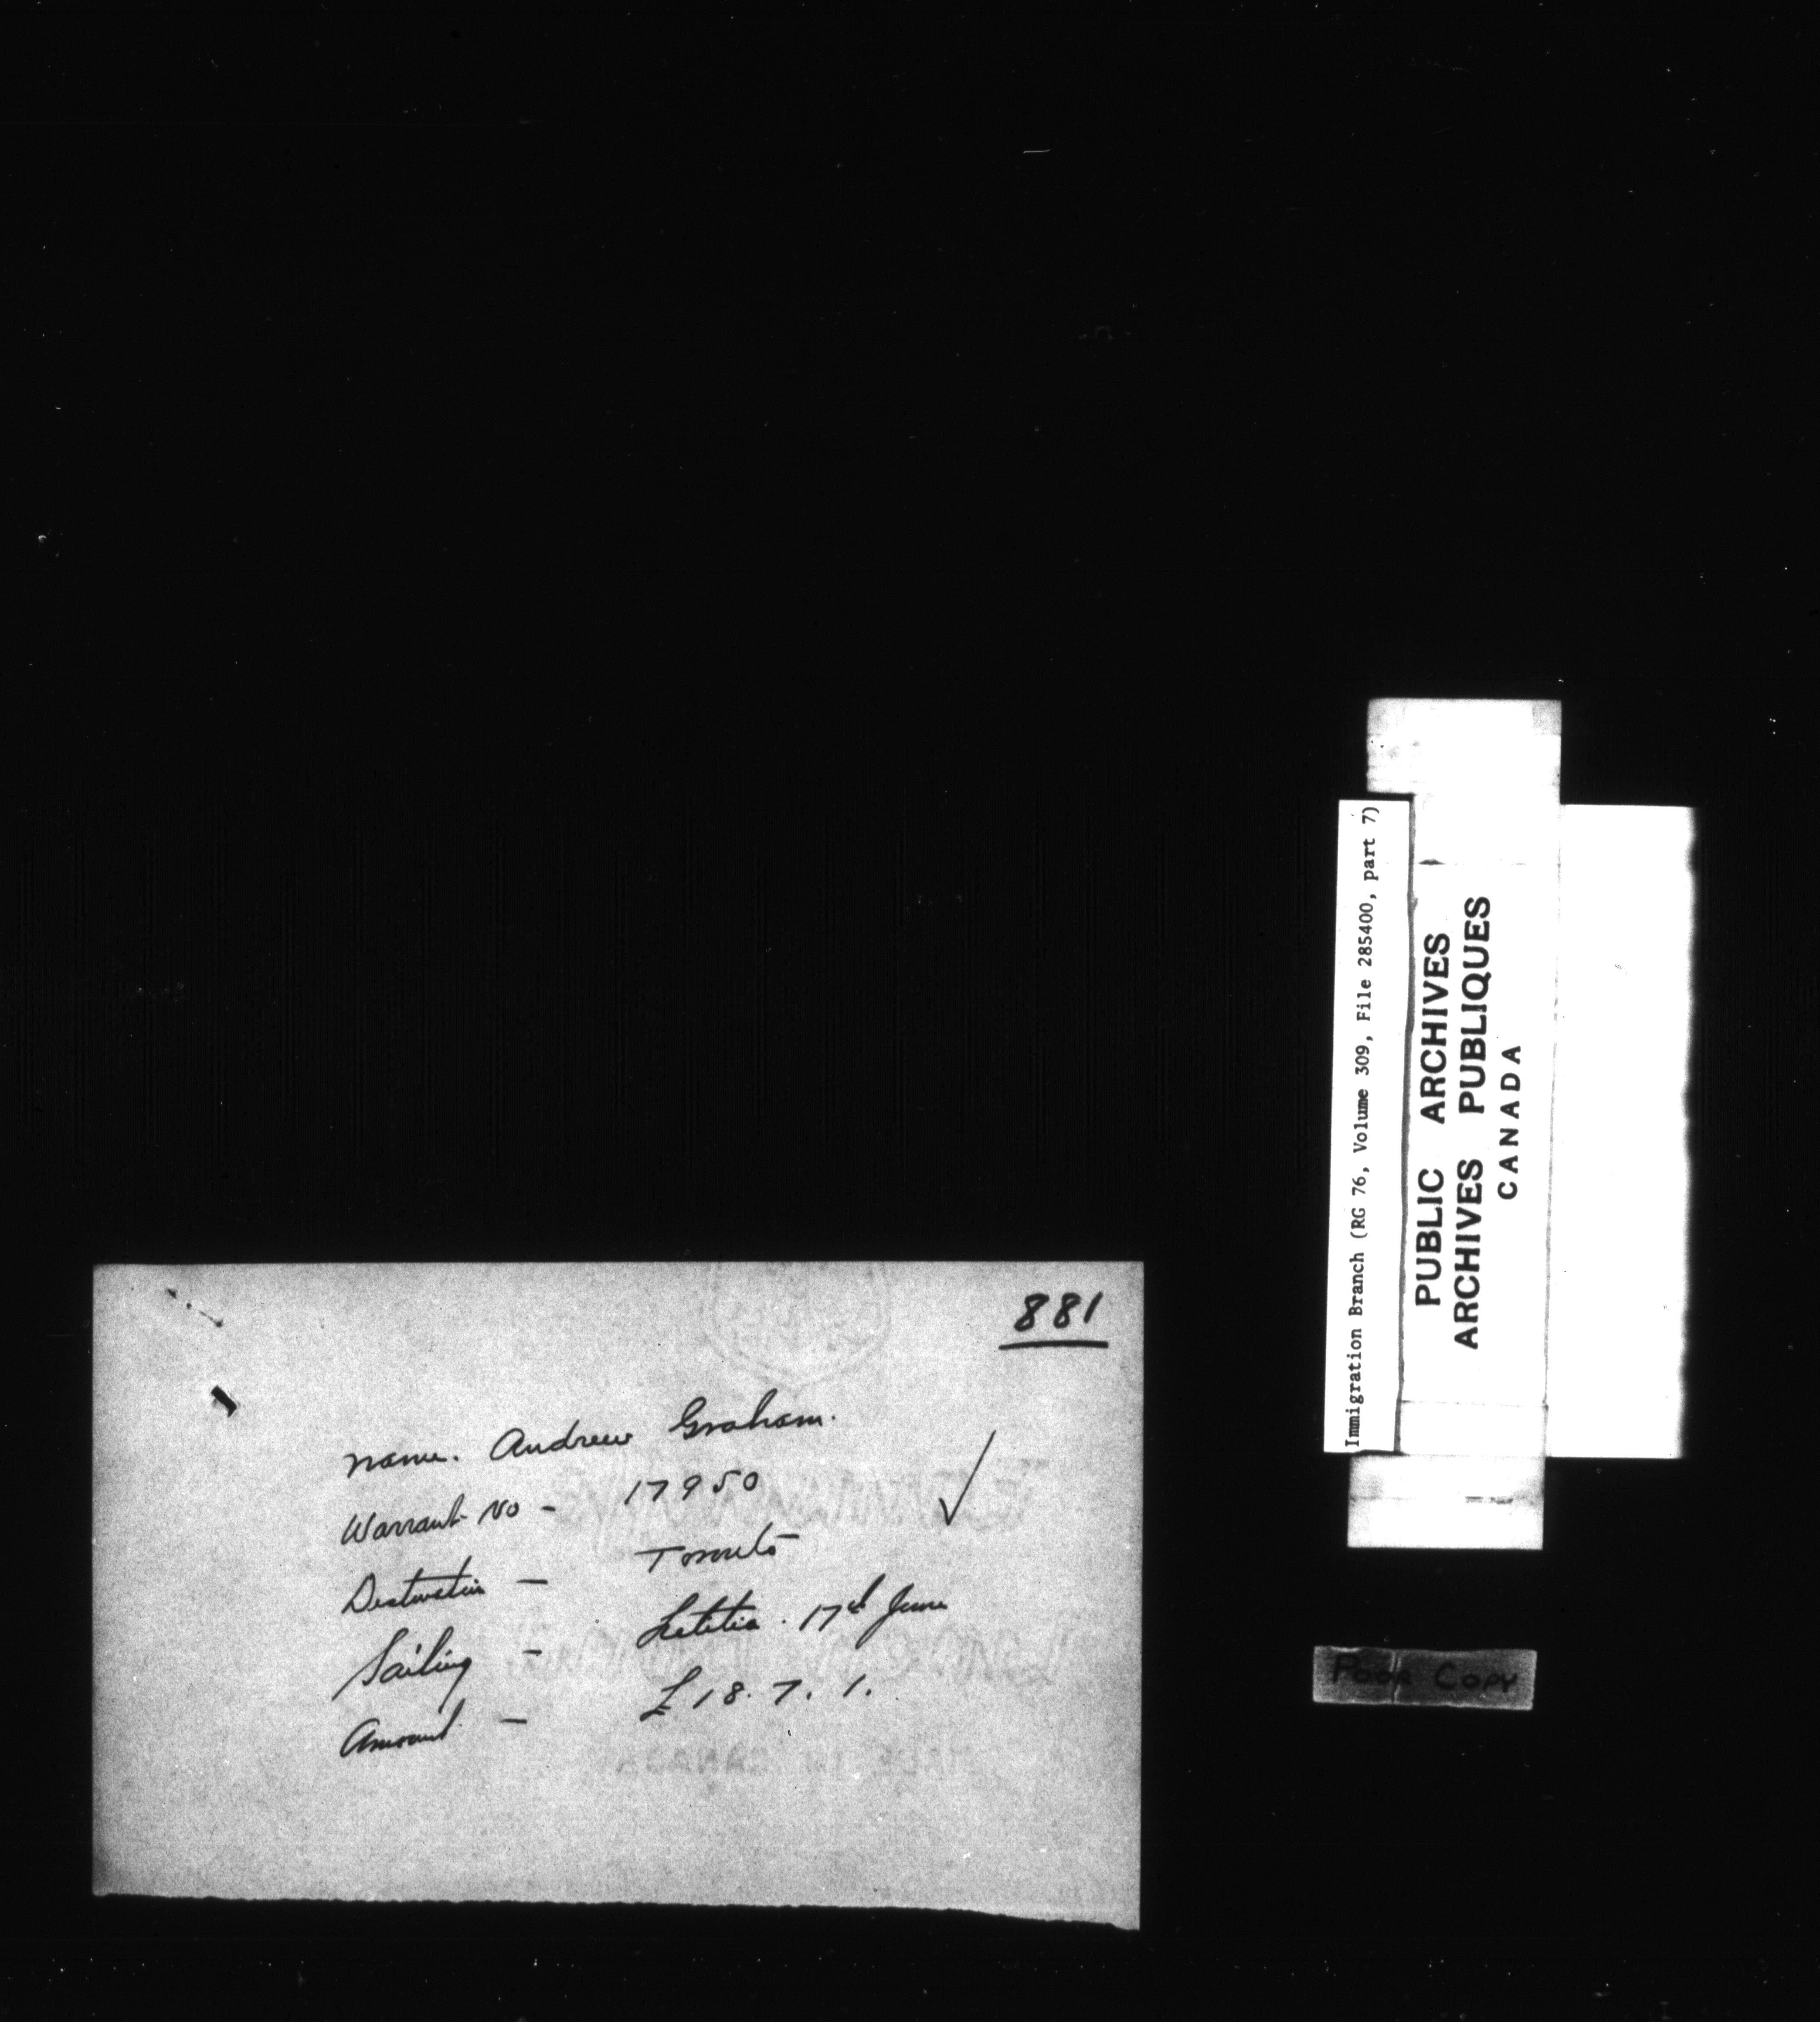 881
Name. Andrew Graham.
Warrant No - 17950
Destination - Toronto
Sailing - Letitia. 17th June
Amount - £18.7.1.
MADE IN CANADA
Immigration Branch (RG 76, Volume 309, File 285400, part 7)
PUBLIC ARCHIVES
ARCHIVES PUBLIQUES
CANADA
Poor Copy